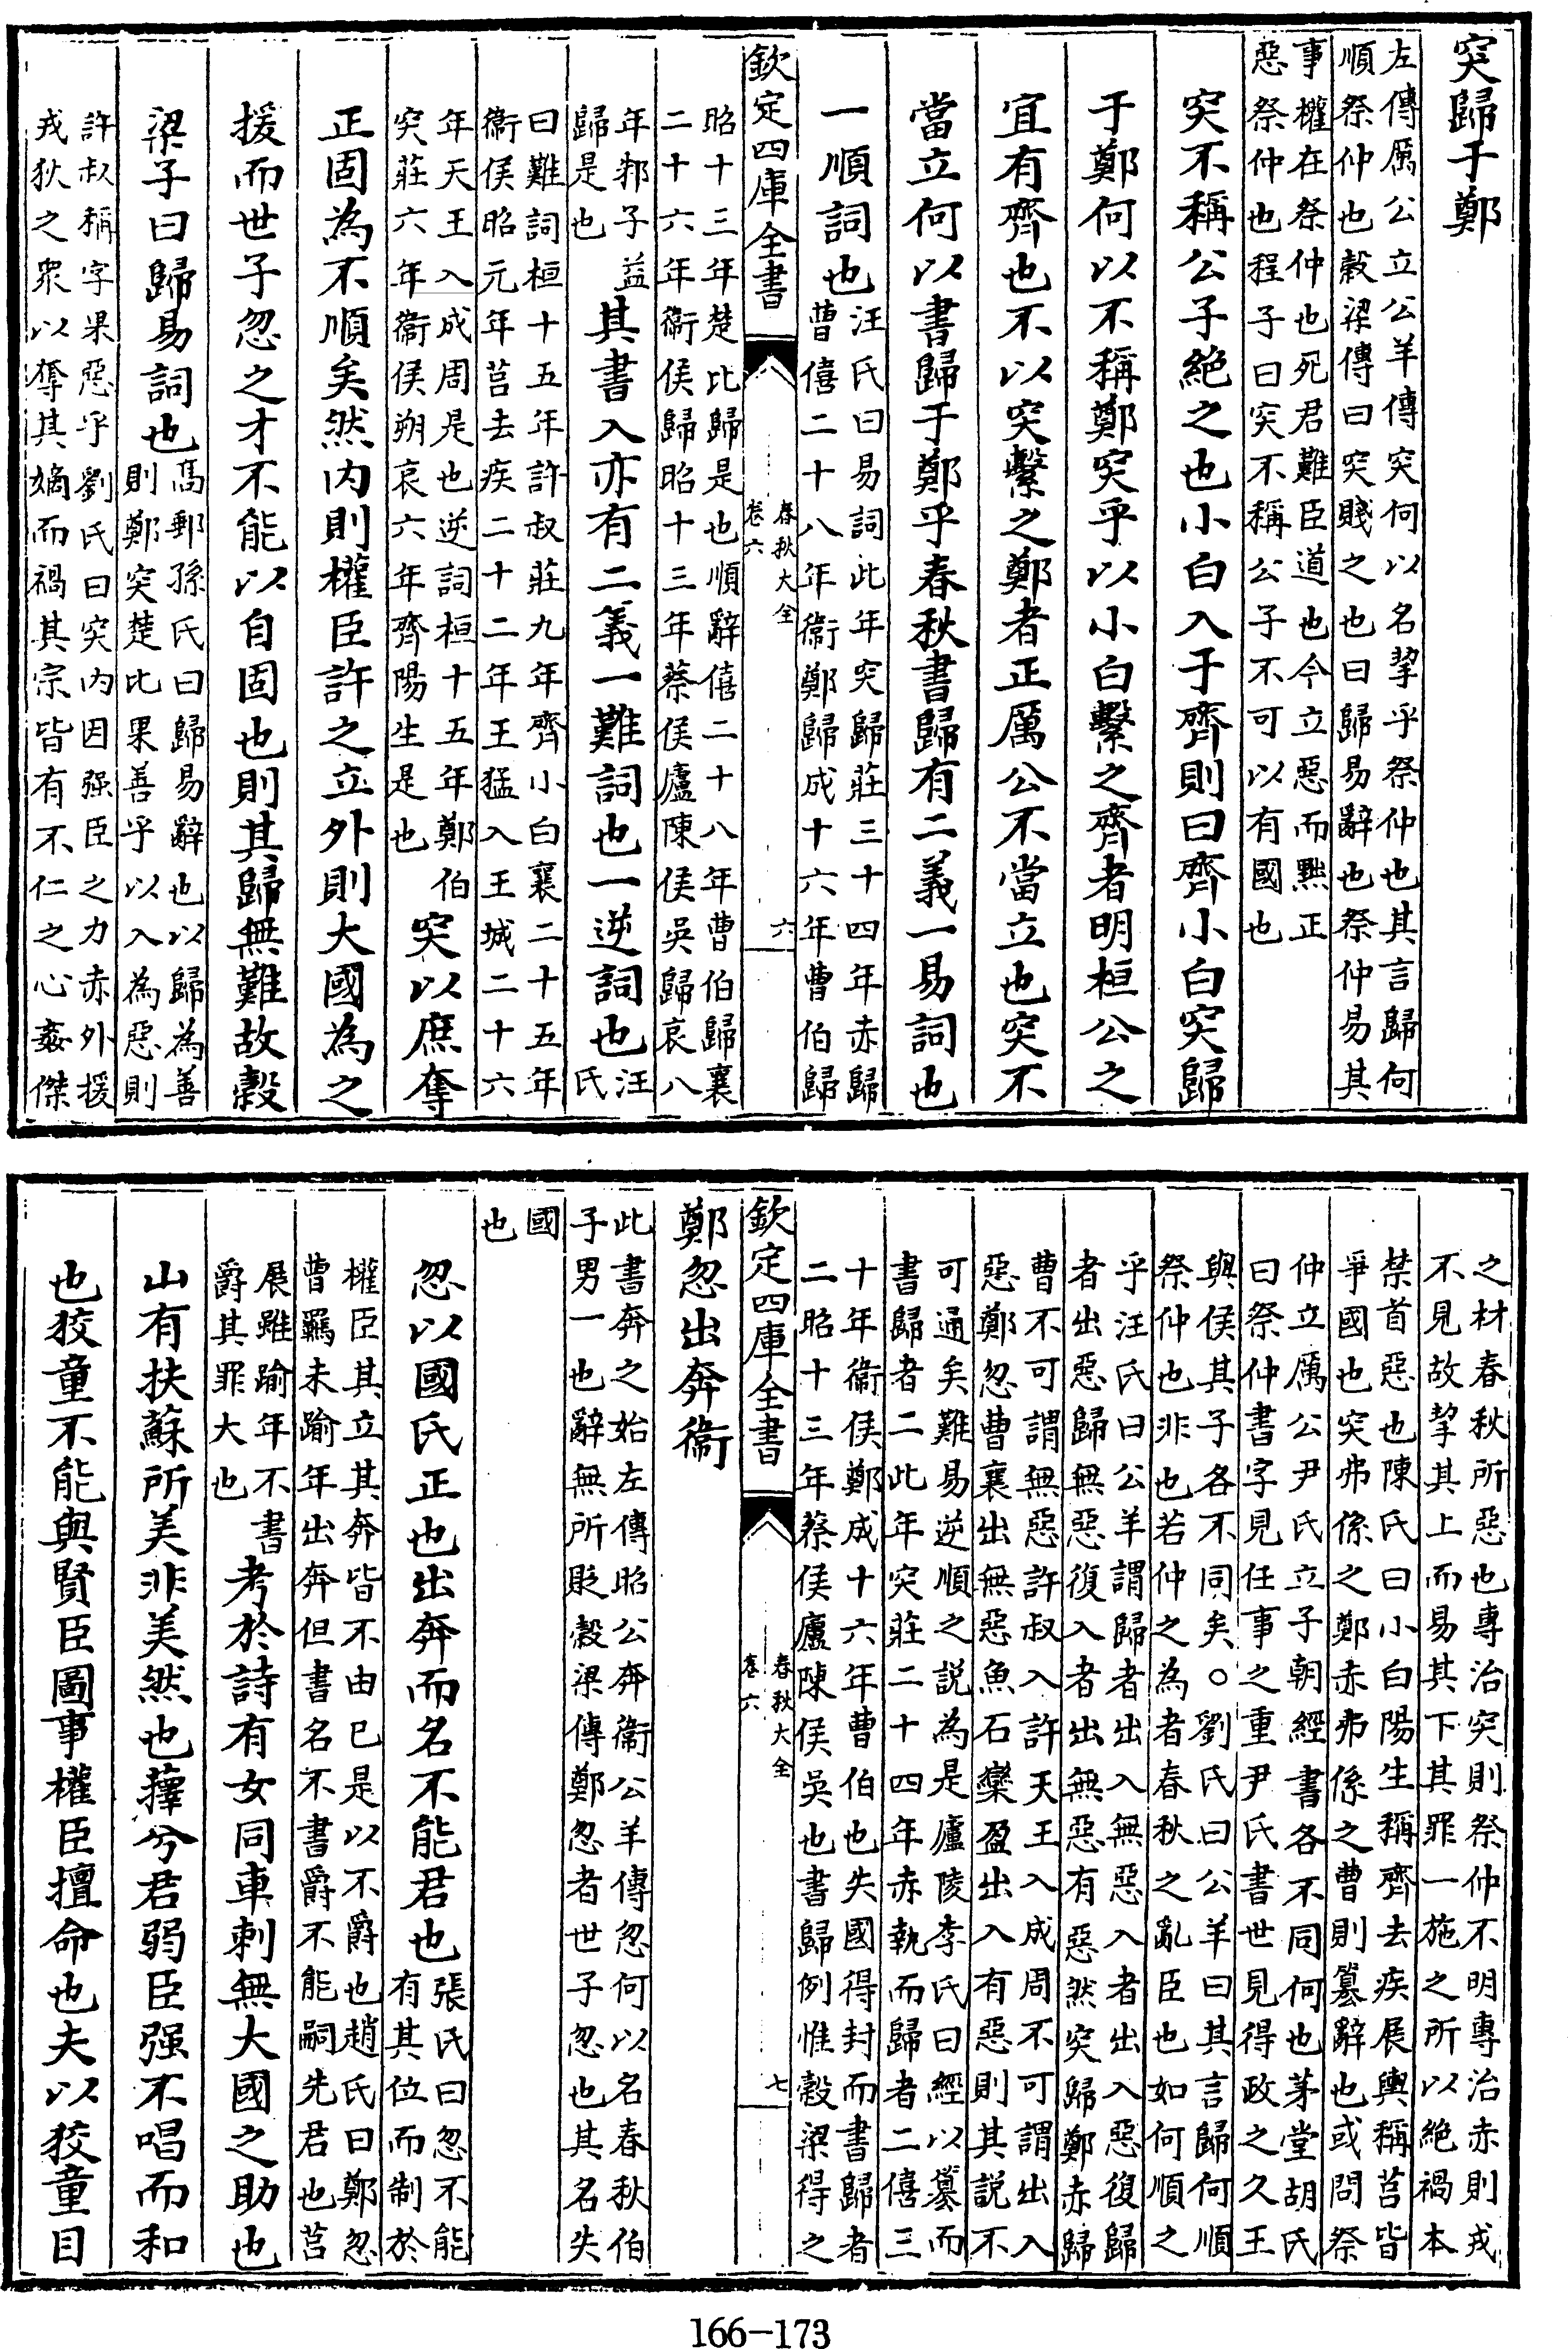 突歸于鄭
左傳厲公立公羊傳突何以名挈乎祭仲也其言歸何
順祭仲也穀梁傳曰突賤之也曰歸易辭也祭仲易其
事權在祭仲也死君難臣道也今立惡而黜正
惡祭仲也程子曰突不稱公子不可以有國也
突不稱公子絶之也小白入于齊則曰齊小白突歸
于鄭何以不稱鄭突乎以小白繫之齊者明桓公之
宜有齊也不以突繫之鄭者正厲公不當立也突不
當立何以書歸于鄭乎春秋書歸有二義一易詞也
一順詞也
汪氏曰易詞此年突歸莊三十四年赤歸
曹僖二十八年衞鄭歸成十六年曹伯歸
欽定四庫全書
春秋大全
卷六
六
昭十三年楚比歸是也順辭僖二十八年曹伯歸襄
二十六年衞侯歸昭十三年蔡侯廬陳侯吳歸哀八
年邾子益
歸是也
其書入亦有二義一難詞也一逆詞也
汪
氏
曰難詞桓十五年許叔莊九年齊小白襄二十五年
衞侯昭元年莒去疾二十二年王猛入王城二十六
年天王入成周是也逆詞桓十五年鄭伯
突莊六年衞侯朔哀六年齊陽生是也
突以庶奪
正固為不順矣然内則權臣許之立外則大國為之
援而世子忽之才不能以自固也則其歸無難故穀
梁子曰歸易詞也
髙郵孫氏曰歸易辭也以歸為善
則鄭突楚比果善乎以入為惡則
許叔稱字果惡乎劉氏曰突内因强臣之力赤外援
戎狄之衆以奪其嫡而禍其宗皆有不仁之心姦傑
之材春秋所惡也專治突則祭仲不明專治赤則戎
不見故挈其上而易其下其罪一施之所以絶禍本
禁首惡也陳氏曰小白陽生稱齊去疾展輿稱莒皆
爭國也突弗係之鄭赤弗係之曹則簒辭也或問祭
仲立厲公尹氏立子朝經書各不同何也茅堂胡氏
曰祭仲書字見任事之重尹氏書世見得政之久王
與侯其子各不同矣○劉氏曰公羊曰其言歸何順
祭仲也非也若仲之為者春秋之亂臣也如何順之
乎汪氏曰公羊謂歸者出入無惡入者出入惡復歸
者出惡歸無惡復入者出無惡有惡然突歸鄭赤歸
曹不可謂無惡許叔入許天王入成周不可謂出入
惡鄭忽曹襄出無惡魚石欒盈出入有惡則其説不
可通矣難易逆順之説為是廬陵李氏曰經以簒而
書歸者二此年突莊二十四年赤執而歸者二僖三
十年衞侯鄭成十六年曹伯也失國得封而書歸者
二昭十三年蔡侯廬陳侯吳也書歸例惟穀梁得之
欽定四庫全書
春秋大全
卷六
七
鄭忽出奔衞
此書奔之始左傳昭公奔衞公羊傳忽何以名春秋伯
子男一也辭無所貶穀梁傳鄭忽者世子忽也其名失
國
也
忽以國氏正也出奔而名不能君也
張氏曰忽不能
有其位而制於
權臣其立其奔皆不由已是以不爵也趙氏曰鄭忽
曹羈未踰年出奔但書名不書爵不能嗣先君也莒
展雖踰年不書
爵其罪大也
考於詩有女同車刺無大國之助也
山有扶蘇所美非美然也蘀兮君弱臣强不唱而和
也狡童不能與賢臣圖事權臣擅命也夫以狡童目
166-173